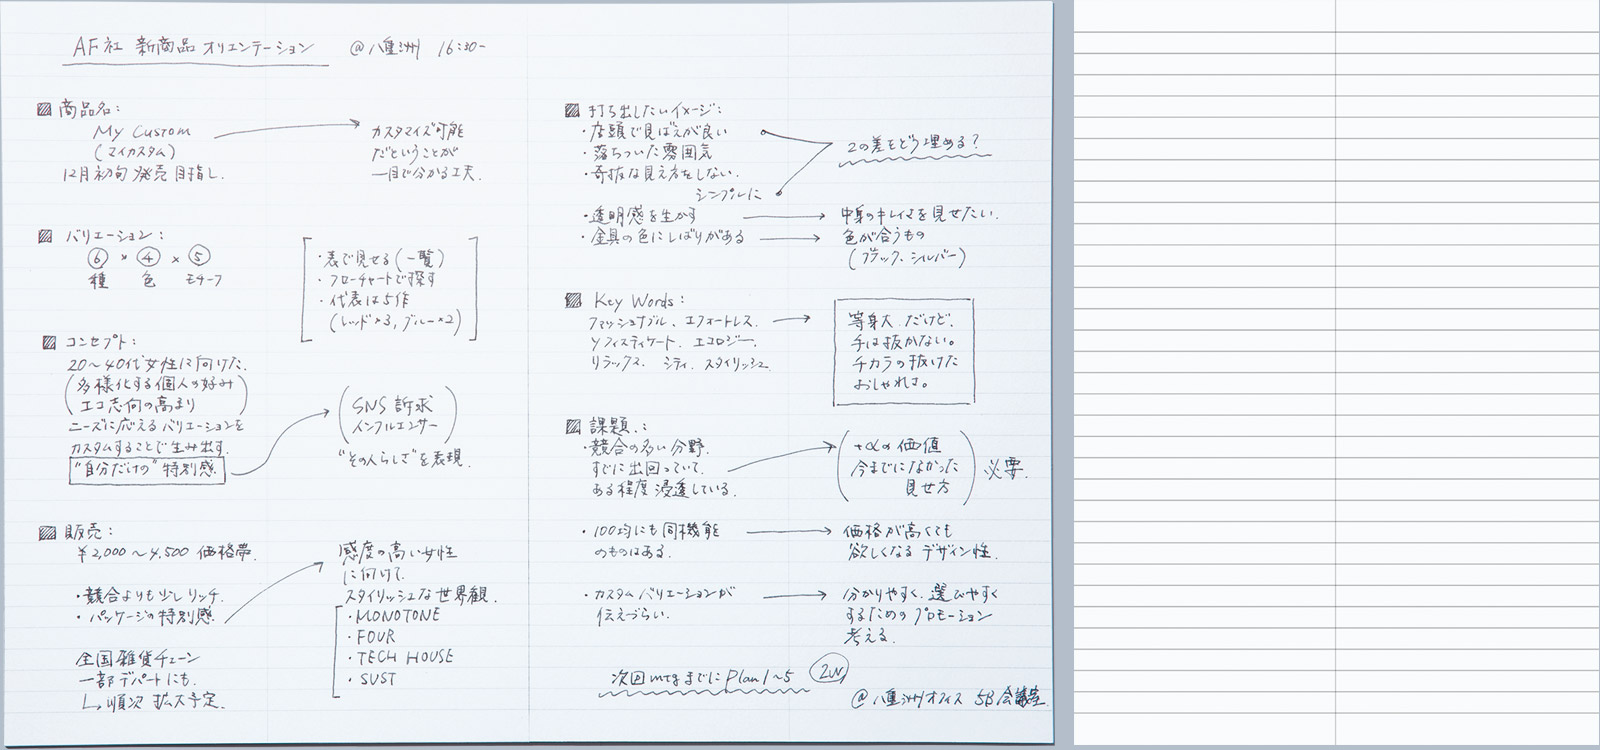 AF社 新商品 オリエンテーション @八重洲 16:30-
商品名:
My Custom
(マイカスタム)
12月初旬 発売目指し.
カスタマイズ可能
だということが
一目で分かる工夫.
バリエーション:
⑥ × ④ × ⑤
種 色 モチーフ
・表で見せる(一覧)
・フローチャートで探す
・代表は5作
(レッド×3, ブルー×2)
コンセプト:
20〜40代女性に向けた.
(多様化する個人の好み
エコ志向の高まり)
ニーズに応えるバリエーションを
カスタムすることで生み出す.
"自分だけの"特別感
(SNS訴求
インフルエンサー)
"その人らしさ"を表現.
販売:
¥2,000〜4,500 価格帯.
・競合よりも少しリッチ.
・パッケージの特別感
全国雑貨チェーン
一部デパートにも.
↳順次 拡大予定.
感度の高い女性
に向けて.
スタイリッシュな世界観.
・MONOTONE
・FOUR
・TECH HOUSE
・SUST
打ち出したいイメージ:
・店頭で見ばえが良い
・落ちついた雰囲気
・奇抜な見え方をしない.
シンプルに
この差をどう埋める?
・透明感を生かす → 中身のキレイさを見せたい.
・金具の色にしばりがある → 色が合うもの
(ブラック、シルバー)
Key Words:
ファッショナブル、エフォートレス.
ソフィスティケート、エコロジー.
リラックス. シティ. スタイリッシュ
等身大だけど、
手は抜かない。
チカラの抜けた
おしゃれさ。
課題.:
・競合の多い分野.
すでに出回っていて.
ある程度 浸透している.
(+αの価値
今までになかった
見せ方) 必要.
・100均にも同機能
のものはある.
価格が高くても
欲しくなるデザイン性.
・カスタムバリエーションが
伝えづらい.
分かりやすく、選びやすく
するためのプロモーション
考える.
次回mtgまでにPlan1〜5 2W
@八重洲オフィス 5B会議室